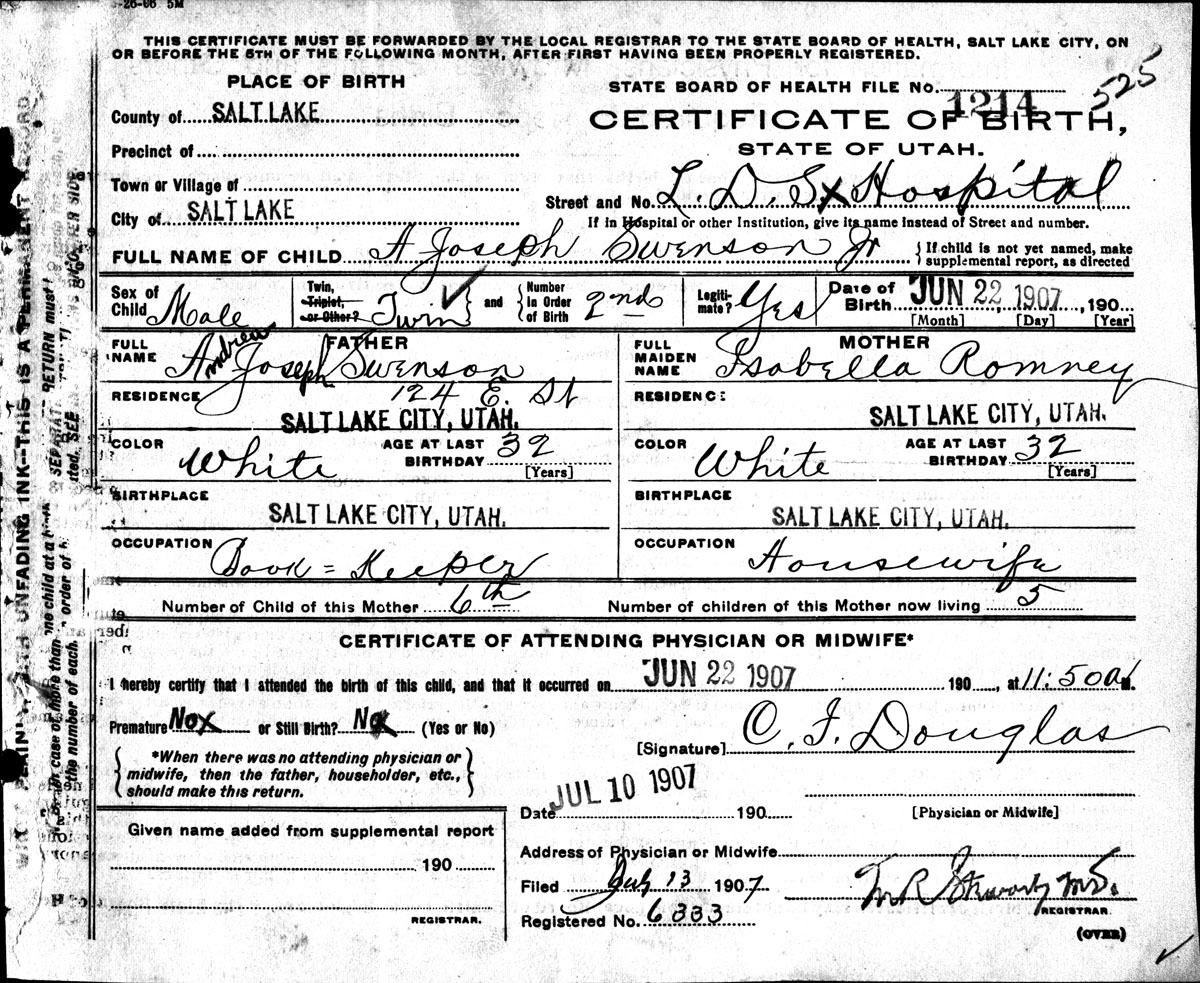 -26-06 5M
THIS CERTIFICATE MUST BE FORWARDED BY THE LOCAL REGISTRAR TO THE STATE BOARD OF HEALTH, SALT LAKE CITY, ON
OR BEFORE THE 5TH OF THE FOLLOWING MONTH, AFTER FIRST HAVING BEEN PROPERLY REGISTERED.
525
PLACE OF BIRTH
County of SALT LAKE
Precinct of
Town or Village of
City of SALT LAKE
STATE BOARD OF HEALTH FILE No. 1214
CERTIFICATE OF BIRTH,
STATE OF UTAH.
Street and No. L. D. S. Hospital
If in Hospital or other Institution, give its name instead of Street and number.
FULL NAME OF CHILD A Joseph Swenson Jr
If child is not yet named, make
supplemental report, as directed
Sex of Child Male
Twin, Triplet, or Other? Twin
and Number in Order of Birth 2nd
Legitimate? Yes
Date of Birth JUN 22 1907, 190
[Month] [Day] [Year]
FATHER
FULL NAME Andrew Joseph Swenson
RESIDENCE 124 E. St
SALT LAKE CITY, UTAH.
COLOR White
AGE AT LAST BIRTHDAY 32
[Years]
BIRTHPLACE
SALT LAKE CITY, UTAH.
OCCUPATION
Book = Keeper
MOTHER
FULL MAIDEN NAME Isabella Romney
RESIDENCE
SALT LAKE CITY, UTAH.
COLOR White
AGE AT LAST BIRTHDAY 32
[Years]
BIRTHPLACE
SALT LAKE CITY, UTAH.
OCCUPATION
Housewife
Number of Child of this Mother 6th
Number of children of this Mother now living 5
CERTIFICATE OF ATTENDING PHYSICIAN OR MIDWIFE*
I hereby certify that I attended the birth of this child, and that it occurred on JUN 22 1907 190 , at 11:50 a M.
Premature No or Still Birth? No (Yes or No)
*When there was no attending physician or
midwife, then the father, householder, etc.,
should make this return.
[Signature] C. F. Douglas
Date JUL 10 1907 190
[Physician or Midwife]
Given name added from supplemental report
190
REGISTRAR.
Address of Physician or Midwife
Filed July 13 1907
Registered No. 6333
REGISTRAR
(OVER)
UNFADING INK—THIS IS A PERMANENT RECORD